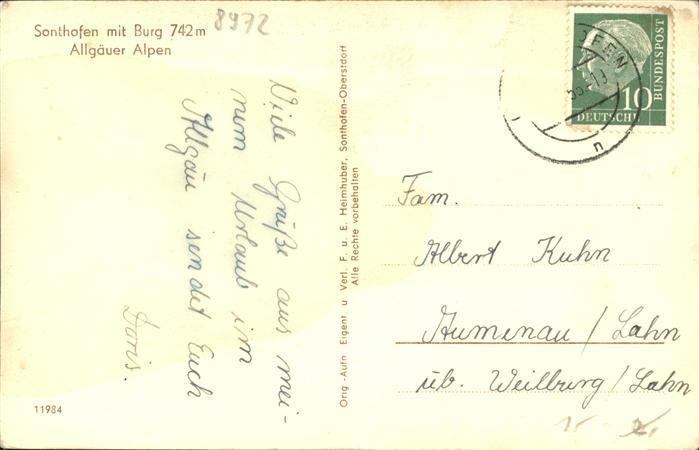 Sonthofen mit Burg 742 m
Allgäuer Alpen
8972
Viele Grüße aus mei-
nem Urlaub im
Allgäu sendet Euch
Doris.
11984
Orig.-Aufn. Eigent. u. Verl. F. u. E. Heimhuber, Sonthofen-Oberstdorf
Alle Rechte vorbehalten
10
DEUTSCHE
BUNDESPOST
OFEN
n
Fam.
Albert Kuhn
Aumenau / Lahn
üb. Weilburg / Lahn